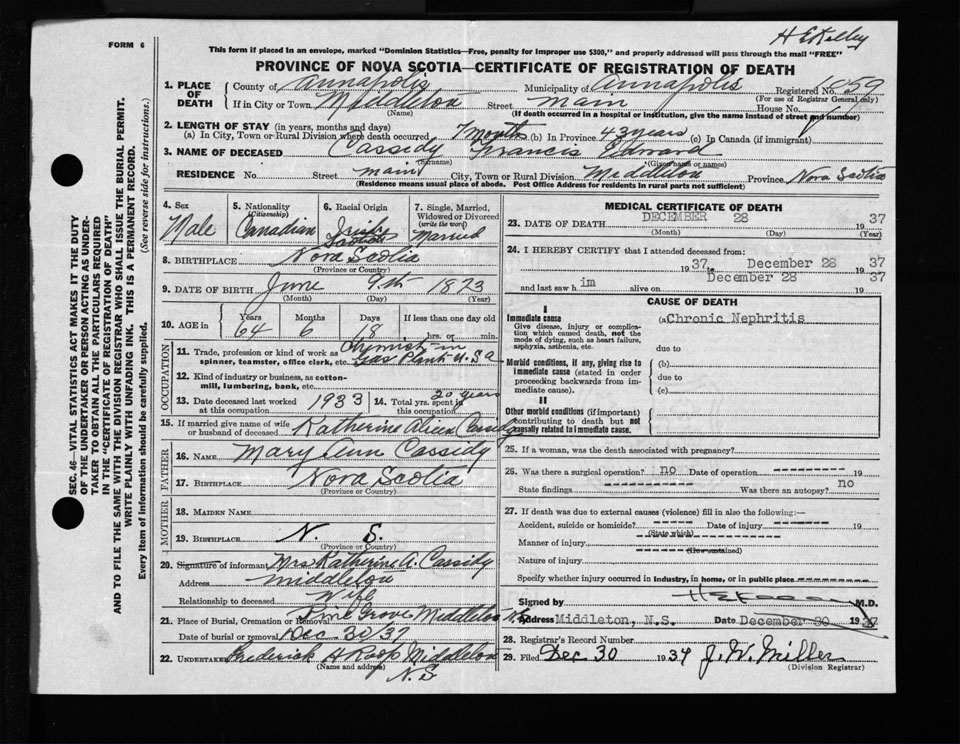 H E Kelley
FORM 6
This form if placed in an envelope, marked "Dominion Statistics—Free, penalty for improper use $300," and properly addressed will pass through the mail "FREE"
PROVINCE OF NOVA SCOTIA—CERTIFICATE OF REGISTRATION OF DEATH
1. PLACE OF DEATH County of Annapolis Municipality of Annapolis Registered No. 1059
(For use of Registrar General only)
If in City or Town Middleton Street main House No.
(Name) (If death occurred in a hospital or institution, give the name instead of street and number)
2. LENGTH OF STAY (in years, months and days)
(a) In City, Town or Rural Division where death occurred 7 months (b) In Province 43 years (c) In Canada (if immigrant)
3. NAME OF DECEASED Cassidy Francis Edward
(Surname) (Given name or names)
RESIDENCE No. Street main City, Town or Rural Division Middleton Province Nova Scotia
(Residence means usual place of abode. Post Office Address for residents in rural parts not sufficient)
4. Sex 5. Nationality (Citizenship) 6. Racial Origin 7. Single, Married, Widowed or Divorced (write the word)
Male Canadian Irish Married
8. BIRTHPLACE Nova Scotia
(Province or Country)
9. DATE OF BIRTH June 9th 1873
(Month) (Day) (Year)
10. AGE in Years Months Days If less than one day old
64 6 18 hrs. or min.
OCCUPATION
11. Trade, profession or kind of work as spinner, teamster, office clerk, etc. Chemist in Gas Plant U.S.A
12. Kind of industry or business, as cotton-mill, lumbering, bank, etc.
13. Date deceased last worked at this occupation 1933 14. Total yrs. spent in this occupation 20 years
15. If married give name of wife or husband of deceased Katherine Alicia Cassidy
FATHER
16. NAME Mary Ann Cassidy
17. BIRTHPLACE Nova Scotia
(Province or Country)
MOTHER
18. MAIDEN NAME
19. BIRTHPLACE N. S.
(Province or Country)
20. Signature of informant Mrs Katherine A. Cassidy
Address middleton
Relationship to deceased Wife
21. Place of Burial, Cremation or Removal Pine Grove Middleton N.S.
Date of burial or removal Dec 30/37
22. Undertaker Frederick A Roop Middleton
(Name and address) N.S
MEDICAL CERTIFICATE OF DEATH
23. DATE OF DEATH DECEMBER 28 1937
(Month) (Day) (Year)
24. I HEREBY CERTIFY that I attended deceased from:
1937 to December 28 1937
and last saw him alive on December 28 1937
CAUSE OF DEATH
I
Immediate cause (a) Chronic Nephritis
Give disease, injury or complication which caused death, not the mode of dying, such as heart failure, asphyxia, asthenia, etc. due to
Morbid conditions, if any, giving rise to immediate cause (stated in order proceeding backwards from immediate cause). (b)
due to
(c)
II
Other morbid conditions (if important) contributing to death but not causally related to immediate cause.
25. If a woman, was the death associated with pregnancy?
26. Was there a surgical operation? no Date of operation 19
State findings Was there an autopsy? no
27. If death was due to external causes (violence) fill in also the following:—
Accident, suicide or homicide? Date of injury 19
(State which)
Manner of injury
(How sustained)
Nature of injury
Specify whether injury occurred in industry, in home, or in public place
Signed by H E Kelley M.D.
Address Middleton, N.S. Date December 30 1937
28. Registrar's Record Number
29. Filed Dec 30 1937 J. W. Miller
(Division Registrar)
SEC. 46—VITAL STATISTICS ACT MAKES IT THE DUTY
OF THE UNDERTAKER OR PERSON ACTING AS UNDER-
TAKER TO OBTAIN ALL THE PARTICULARS REQUIRED
IN THE "CERTIFICATE OF REGISTRATION OF DEATH"
AND TO FILE THE SAME WITH THE DIVISION REGISTRAR WHO SHALL ISSUE THE BURIAL PERMIT.
WRITE PLAINLY WITH UNFADING INK. THIS IS A PERMANENT RECORD.
Every item of information should be carefully supplied. (See reverse side for instructions.)